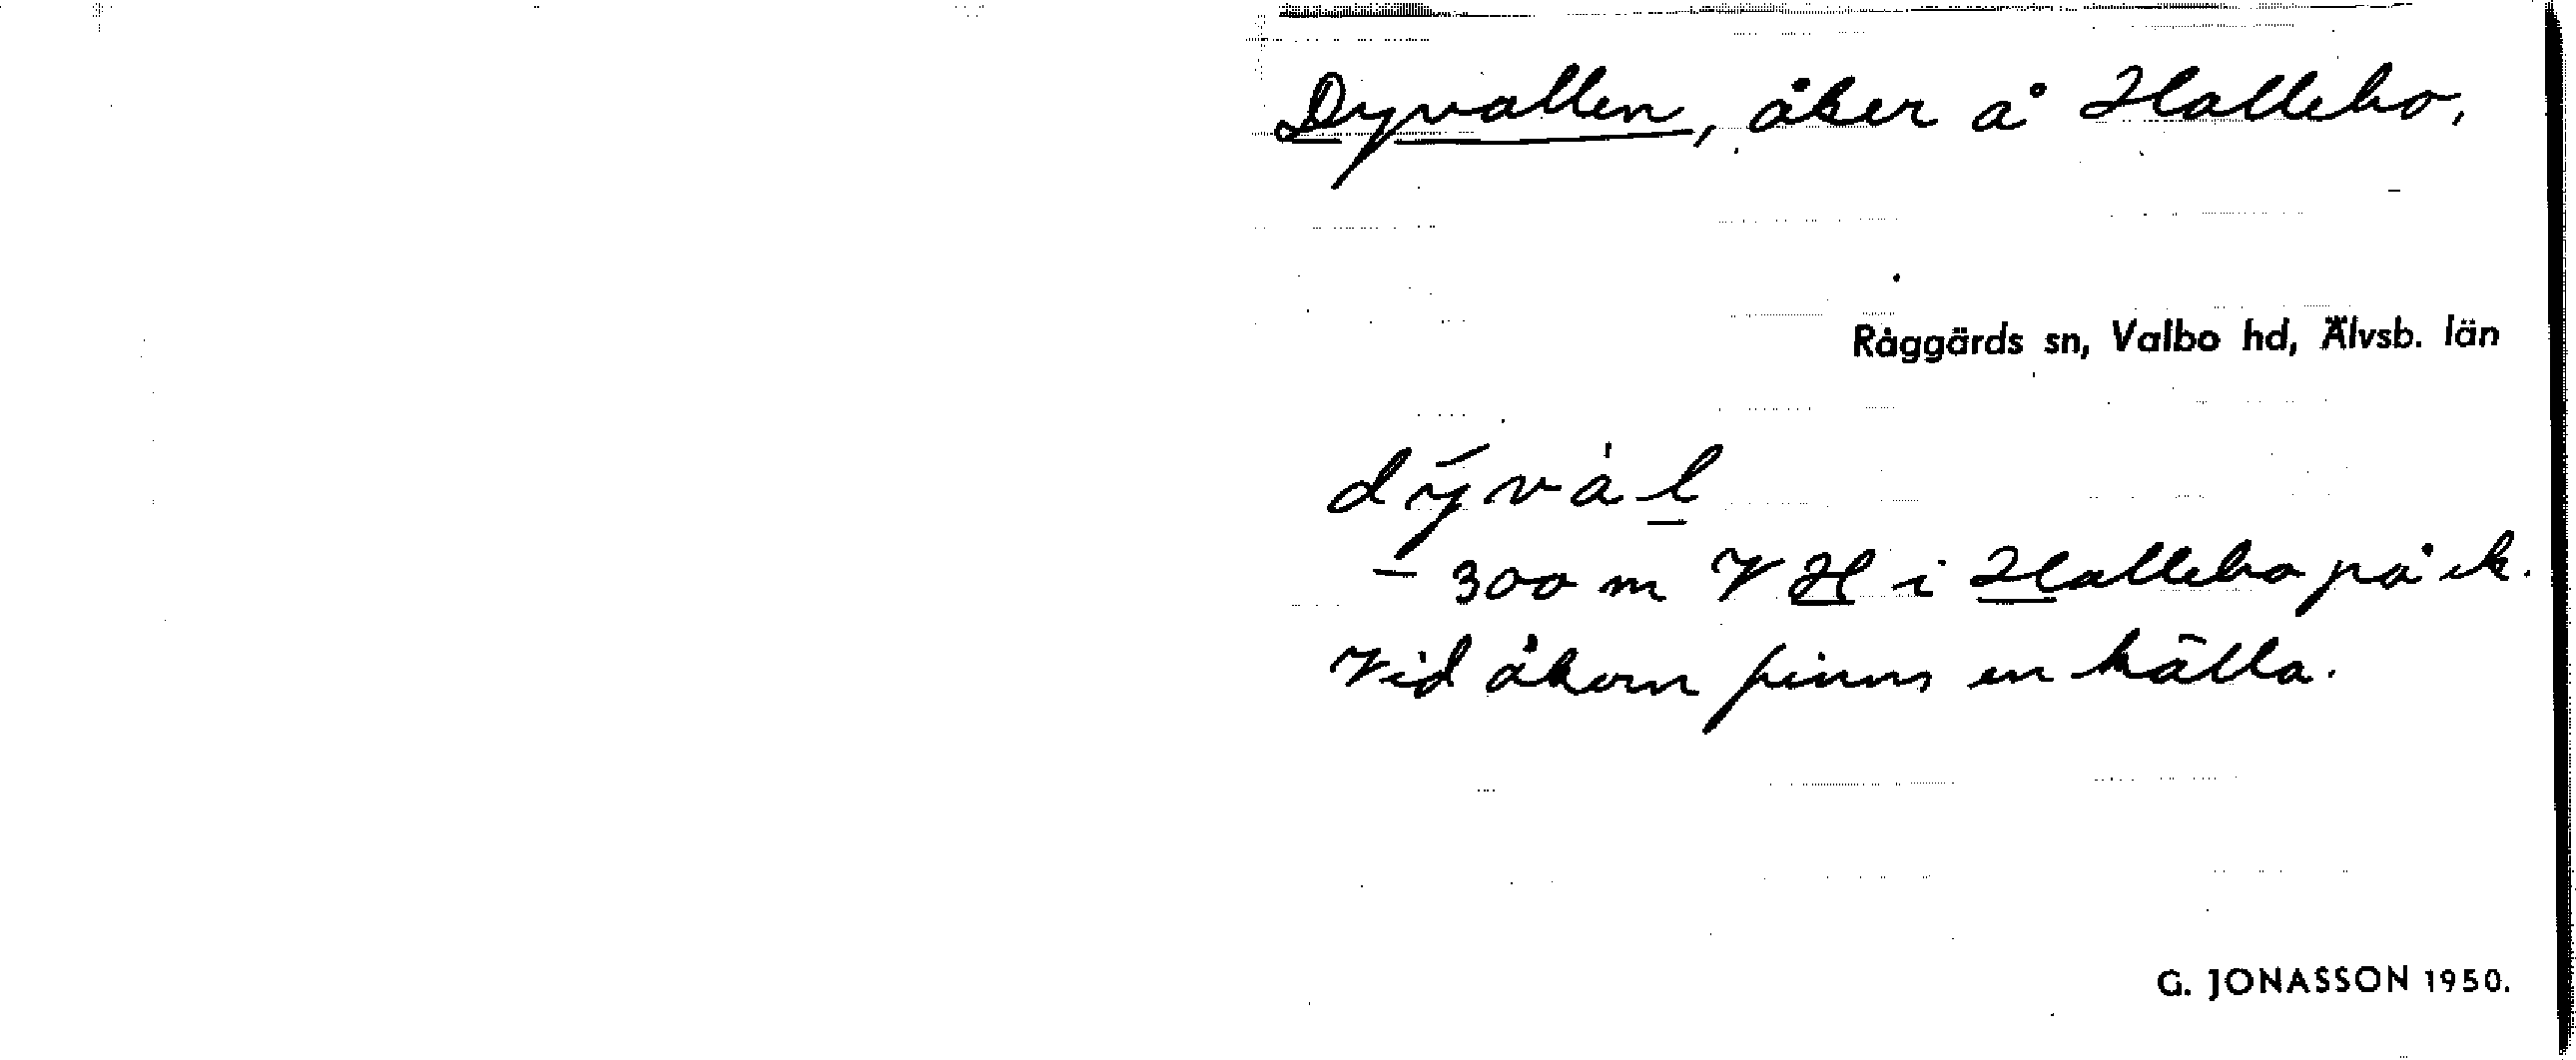 Dyvallen, åker å Hallebo,
Råggärds sn, Valbo hd, Älvsb. län
dývàl
– 300 m V H i Hallebo på ek.
Vid åkern finns en källa.
G. JONASSON 1950.